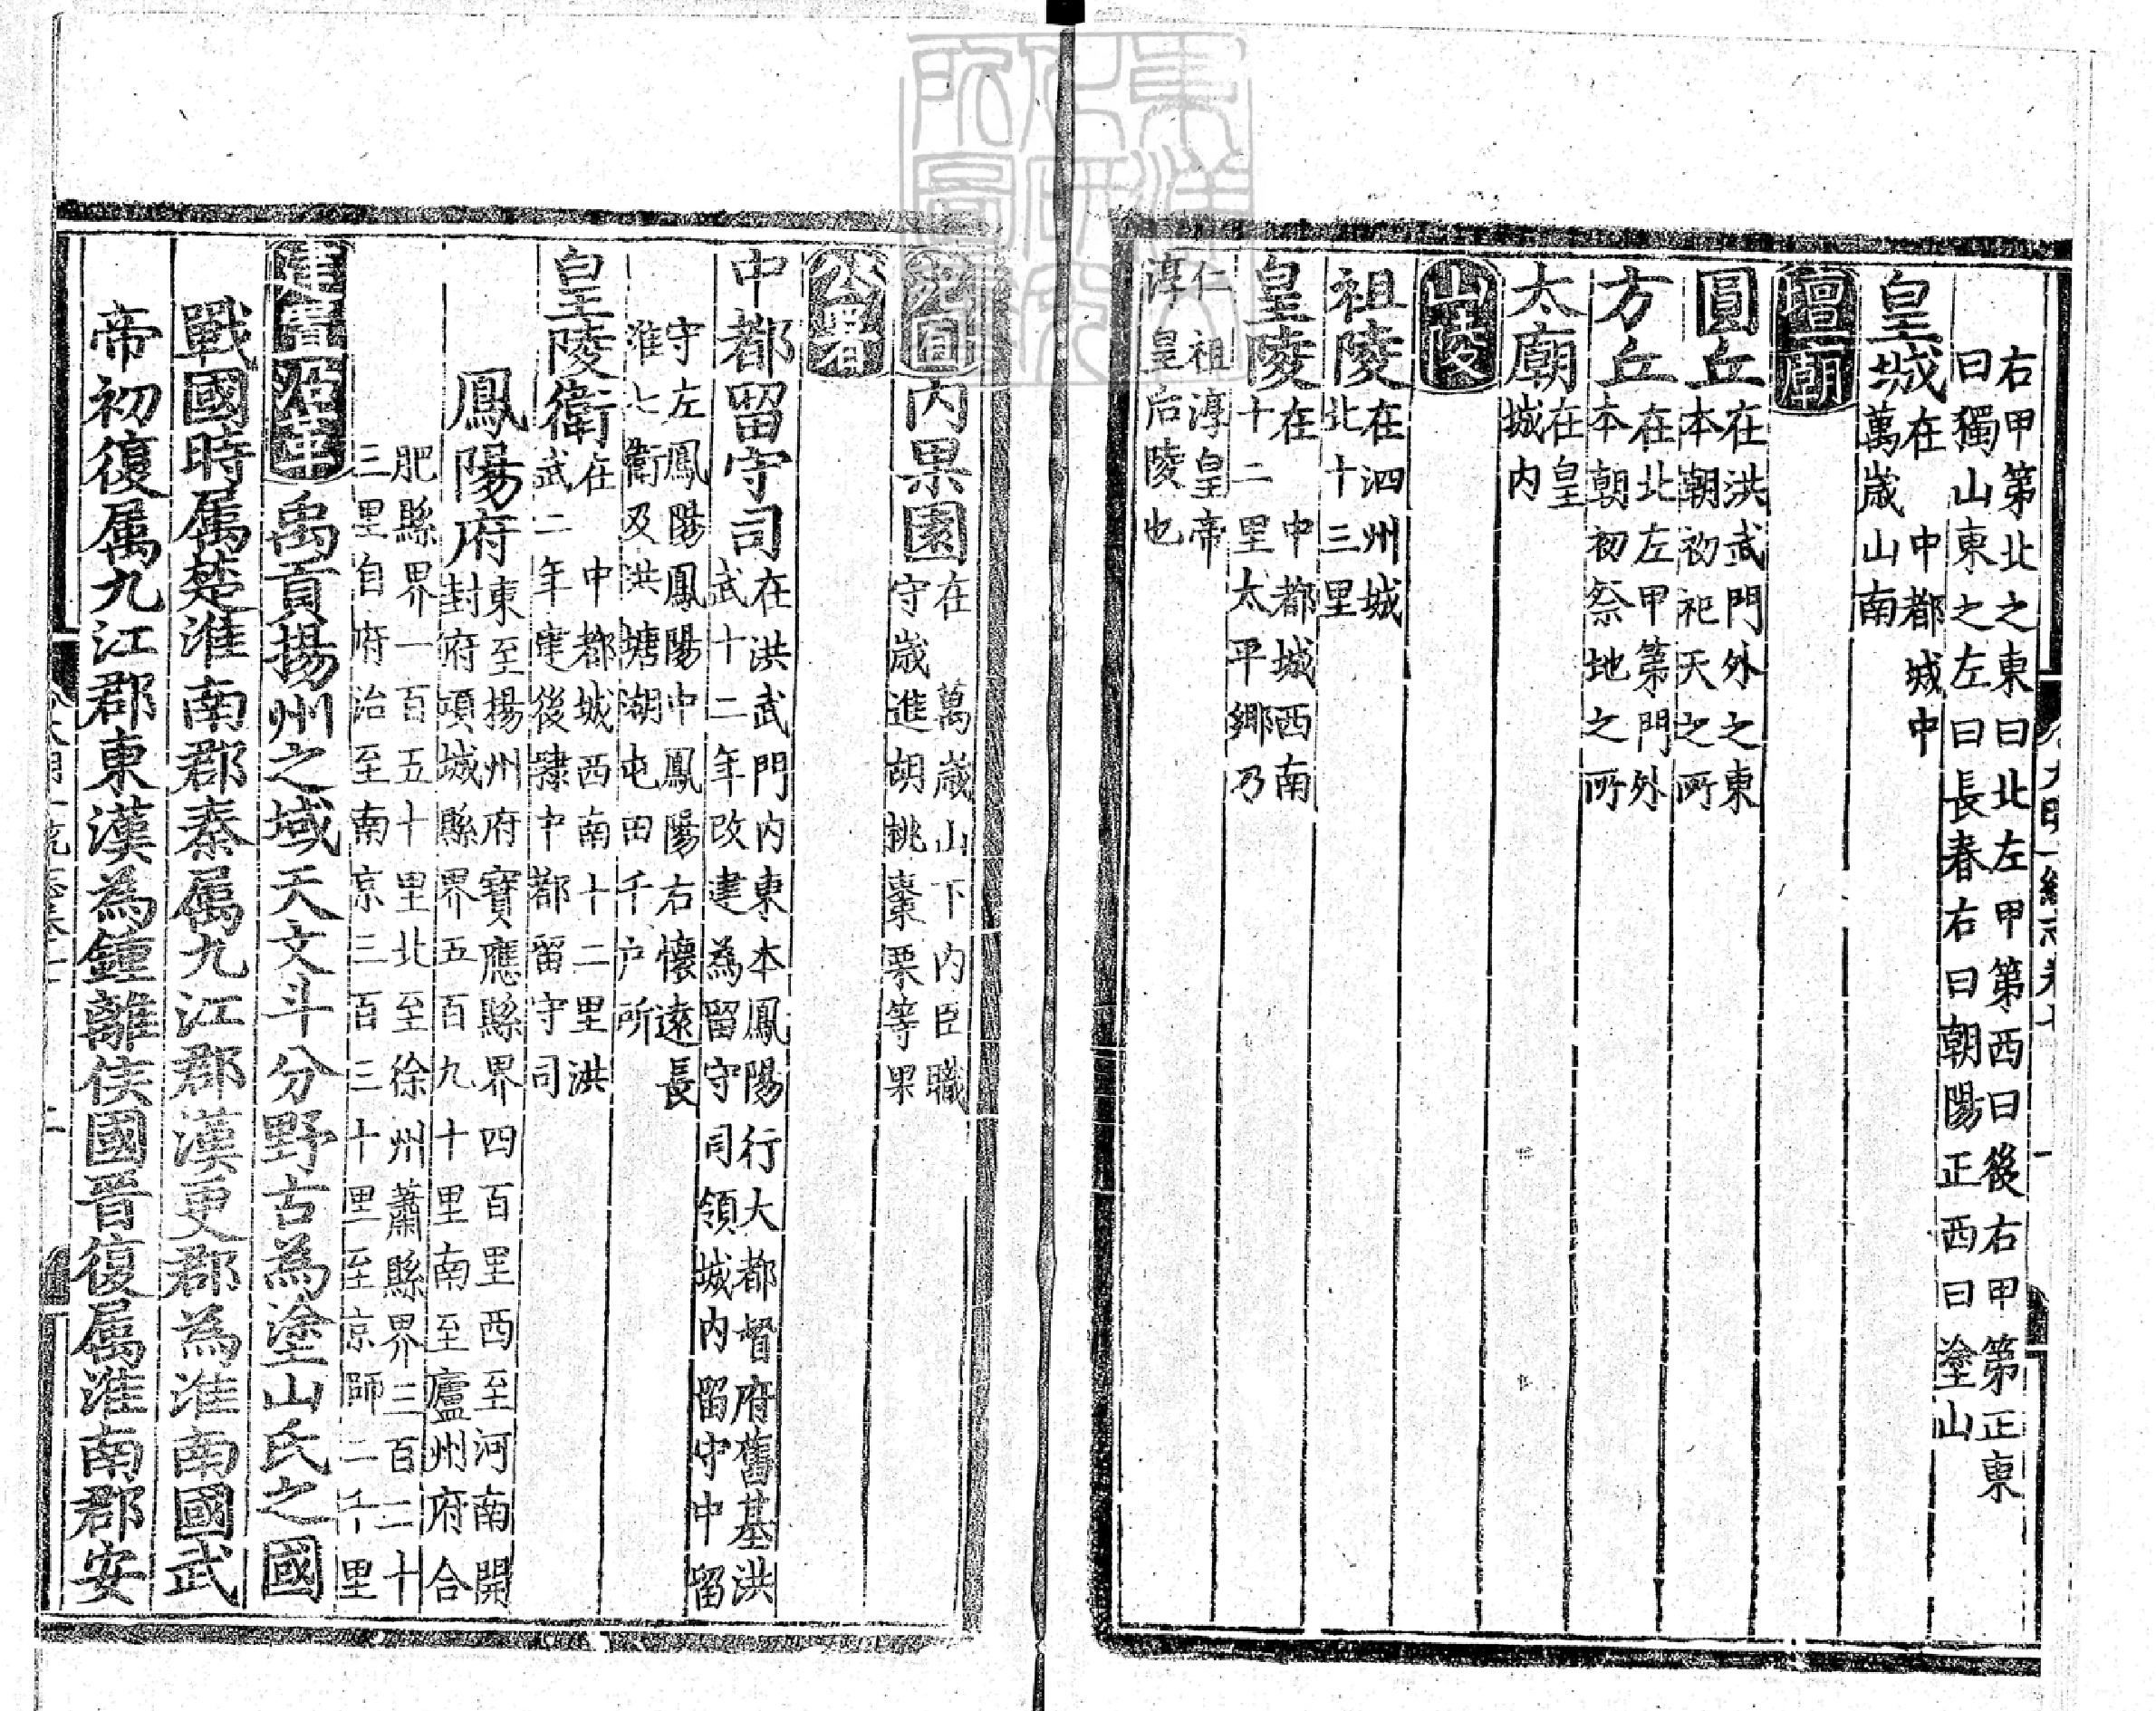 右甲第北之東曰北左甲第西曰後右甲第正東
曰獨山東之左曰長春右曰朝陽正西曰塗山
皇城在中都城中
萬歲山南
壇廟
圓丘在洪武門外之東
本朝初祀天之所
方丘在北左甲第門外
本朝初祭地之所
太廟在皇
城内
山陵
祖陵在泗州城
北十三里
皇陵在中都城西南
十二里太平鄉乃
仁祖淳皇帝
淳皇后陵也
苑囿
内果園在萬歲山下内臣職
守歲進胡桃棗栗等果
公署
中都留守司在洪武門内東本鳳陽行大都督府舊基洪
武十二年改建為留守司領城内留守中留
守左鳳陽鳳陽中鳳陽右懷遠長
淮七衛及洪塘湖屯田千户所
皇陵衛在中都城西南十二里洪
武二年建後隸中都留守司
鳳陽府東至揚州府寶應縣界四百里西至河南開
封府項城縣界五百九十里南至廬州府合
肥縣界一百五十里北至徐州蕭縣界三百二十
三里自府治至南京三百三十里至京師二千里
建置沿革
禹貢揚州之域天文斗分野古為塗山氏之國
戰國時属楚淮南郡秦属九江郡漢更郡為淮南國武
帝初復属九江郡東漢為鍾離侯國晉復属淮南郡安